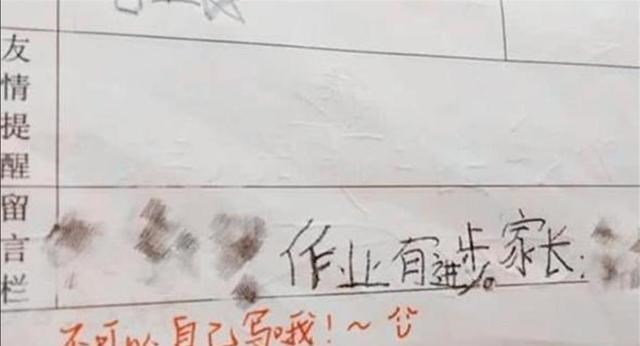 友情提醒
留言栏
作业有进步。家长:
不可以自己写哦!~